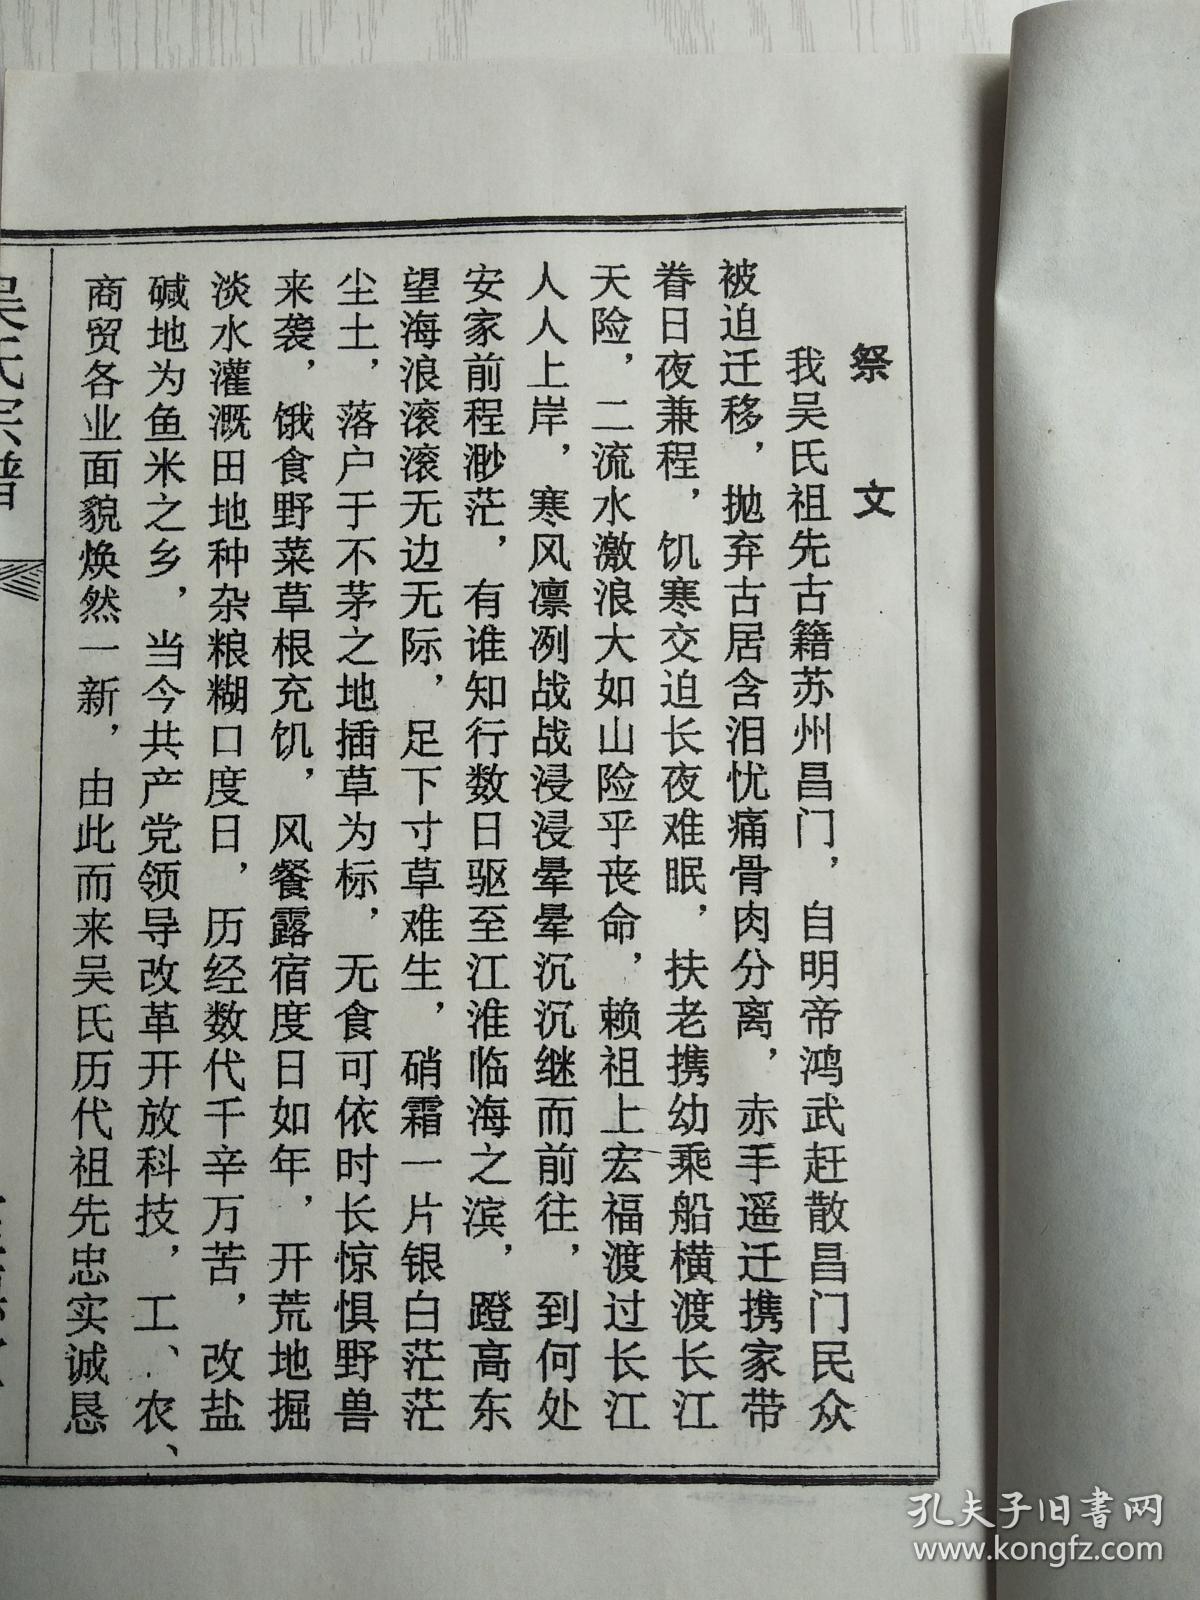 祭文
我吴氏祖先古籍苏州昌门，自明帝鸿武赶散昌门民众
被迫迁移，抛弃古居含泪忧痛骨肉分离，赤手遥迁携家带
眷日夜兼程，饥寒交迫长夜难眠，扶老携幼乘船横渡长江
天险，二流水激浪大如山险乎丧命，赖祖上宏福渡过长江
人人上岸，寒风凛冽战战浸浸晕晕沉沉继而前往，到何处
安家前程渺茫，有谁知行数日驱至江淮临海之滨，蹬高东
望海浪滚滚无边无际，足下寸草难生，硝霜一片银白茫茫
尘土，落户于不茅之地插草为标，无食可依时长惊惧野兽
来袭，饿食野菜草根充饥，风餐露宿度日如年，开荒地掘
淡水灌溉田地种杂粮糊口度日，历经数代千辛万苦，改盐
碱地为鱼米之乡，当今共产党领导改革开放科技，工、农、
商贸各业面貌焕然一新，由此而来吴氏历代祖先忠实诚恳
吴氏宗谱
孔夫子旧书网
www.kongfz.com